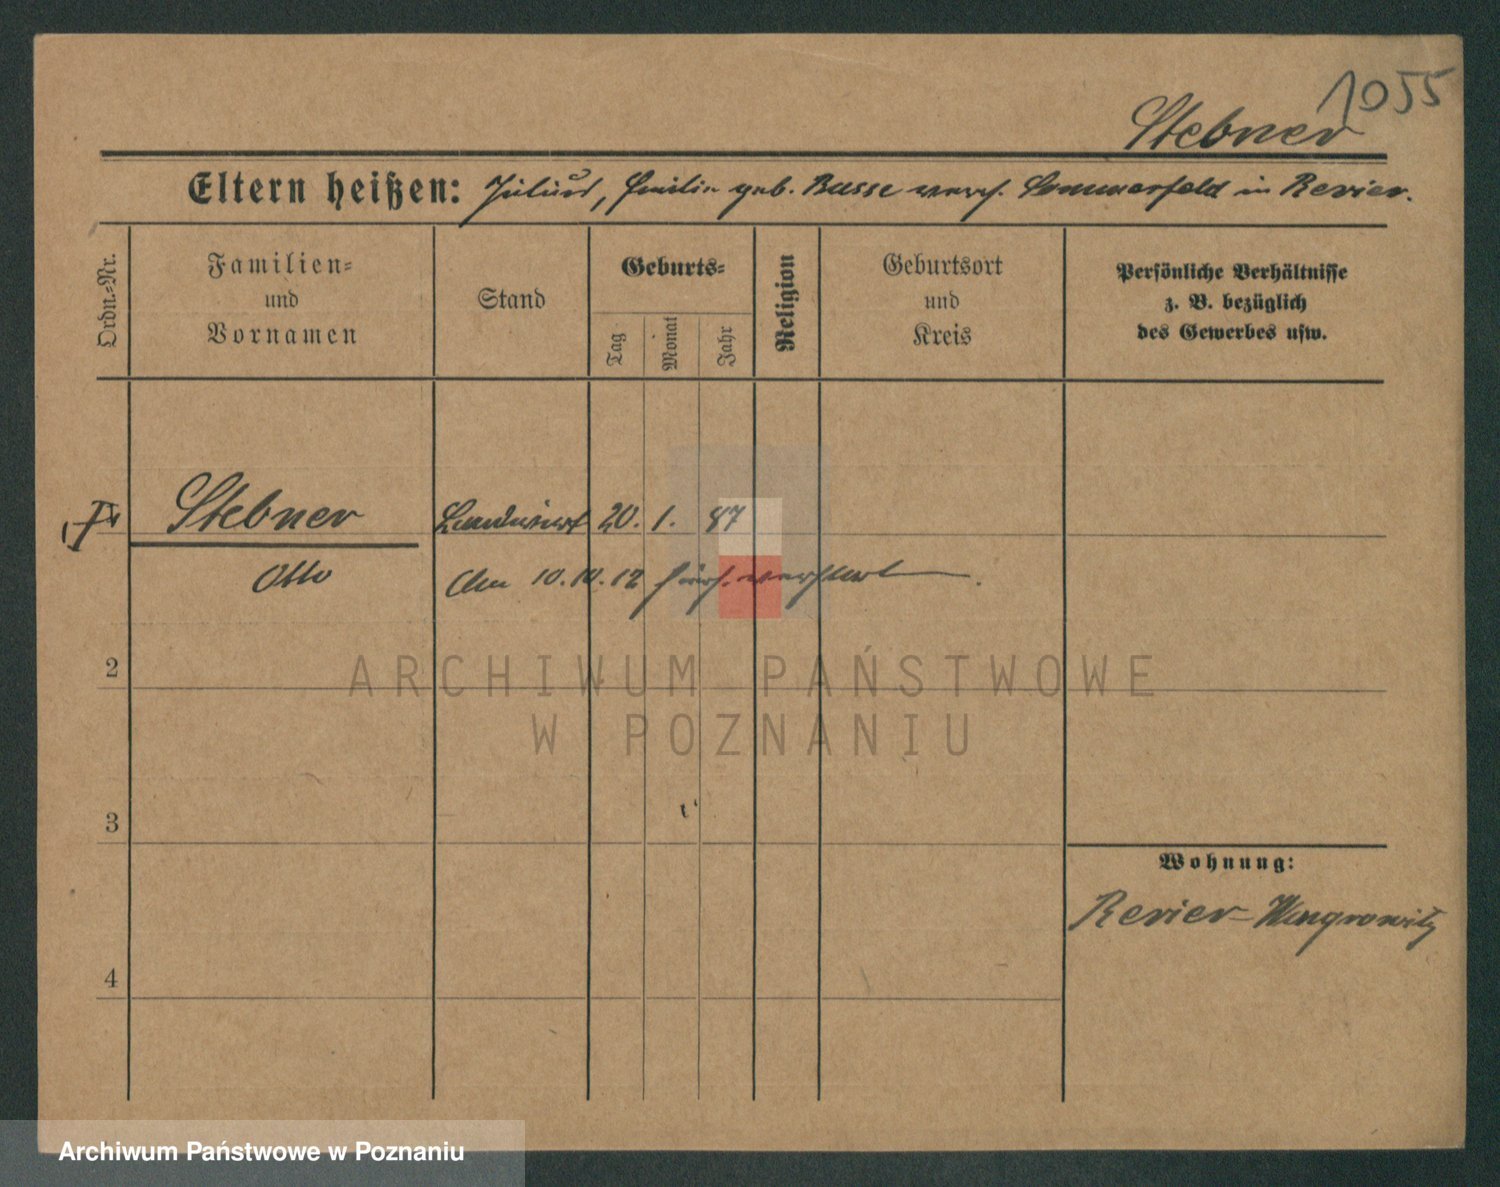 1055
Stebner
Eltern heißen: Julius, Emilie geb. Busse verw. Sommerfeld in Revier.
Ordn.-Nr.
Familien-
und
Vornamen
Stand
Geburts-
Tag
Monat
Jahr
Religion
Geburtsort
und
Kreis
Persönliche Verhältnisse
z. B. bezüglich
des Gewerbes usw.
Stebner Landwirt 20. 1. 87
Otto Am 10.10.12 hier
2
3
4
Wohnung:
Revier-Wongrowitz
ARCHIWUM PAŃSTWOWE
W POZNANIU
Archiwum Państwowe w Poznaniu